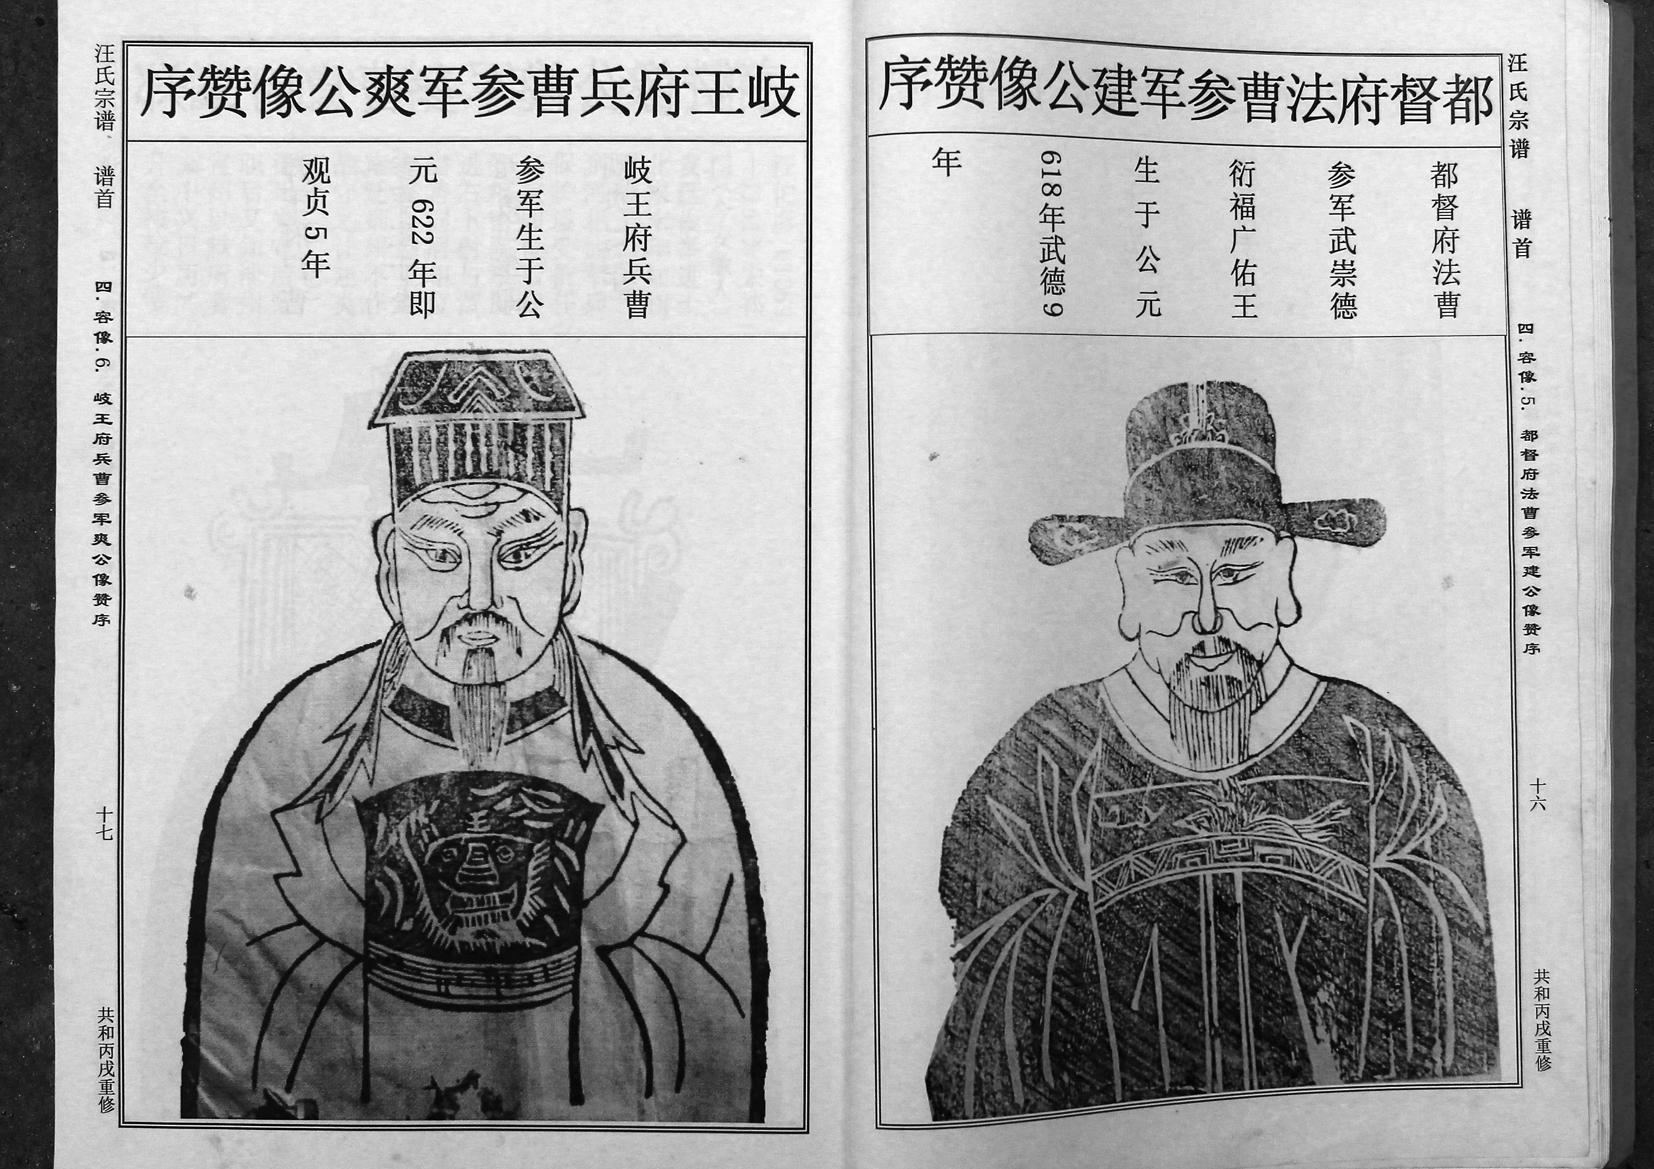 汪氏宗谱 谱首 四.容像.5. 都督府法曹参军建公像赞序 十六 共和丙戌重修
都督府法曹参军建公像赞序
都督府法曹
参军武崇德
衍福广佑王
生于公元
618年武德9
年
岐王府兵曹参军爽公像赞序
岐王府兵曹
参军生于公
元622年即
观贞5年
汪氏宗谱 谱首 四.容像.6. 岐王府兵曹参军爽公像赞序 十七 共和丙戌重修